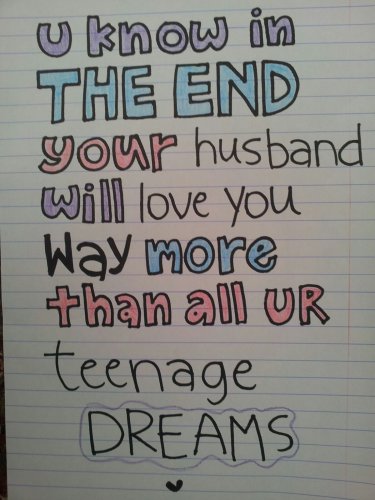 u know in
THE END
your husband
will love you
Way more
than all UR
teenage
DREAMS